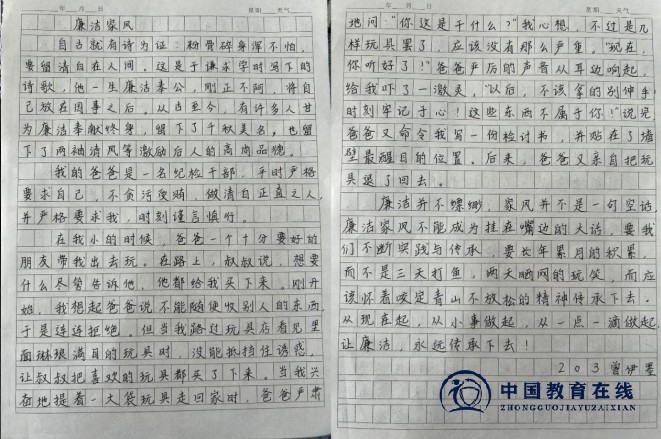 年 月 日 星期 天气
廉洁家风
自古就有诗为证：粉骨碎身浑不怕，
要留清白在人间。这是于谦求学时写下的
诗歌，他一生廉洁奉公，刚正不阿，将自
己放在国事之后。从古至今，有许多人甘
为廉洁奉献终身，留下了千秋美名，也留
下了两袖清风等激励后人的高尚品德。
我的爸爸是一名纪检干部，平时严格
要求自己，不贪污受贿，做清白正直之人，
并严格要求我，时刻谨言慎行。
在我小的时候，爸爸一个十分要好的
朋友带我出去玩。在路上，叔叔说，想要
什么尽管告诉他，他都给我买下来。刚开
始，我想起爸爸说不能随便收别人的东西
于是连连拒绝。但当我路过玩具店看见里
面琳琅满目的玩具时，没能抵挡住诱惑，
让叔叔把喜欢的玩具都买了下来。当我兴
奋地提着一大袋玩具走回家时，爸爸严肃
年 月 日 星期 天气
地问："你这是干什么？"我心想，不过是几
样玩具罢了，应该没有那么严重。"现在，
你听好了！"爸爸严厉的声音从耳边响起，
给我吓了一激灵，"以后，不该拿的别伸手
时刻牢记于心！这些东西不属于你！"说完
爸爸又命令我写一份检讨书，并贴在了墙
壁最醒目的位置。后来，爸爸又亲自把玩
具退了回去。
廉洁并不缥缈，家风并不是一句空话，
廉洁家风不能成为挂在嘴边的大话，要我
们不断实践与传承，要长年累月的积累，
而不是三天打鱼，两天晒网的玩笑，而应
该怀着咬定青山不放松的精神传承下去。
从现在起，从小事做起，从一点一滴做起
让廉洁，永远传承下去！
203 曾伊墨
中国教育在线
ZHONGGUOJIAYUZAIXIAN